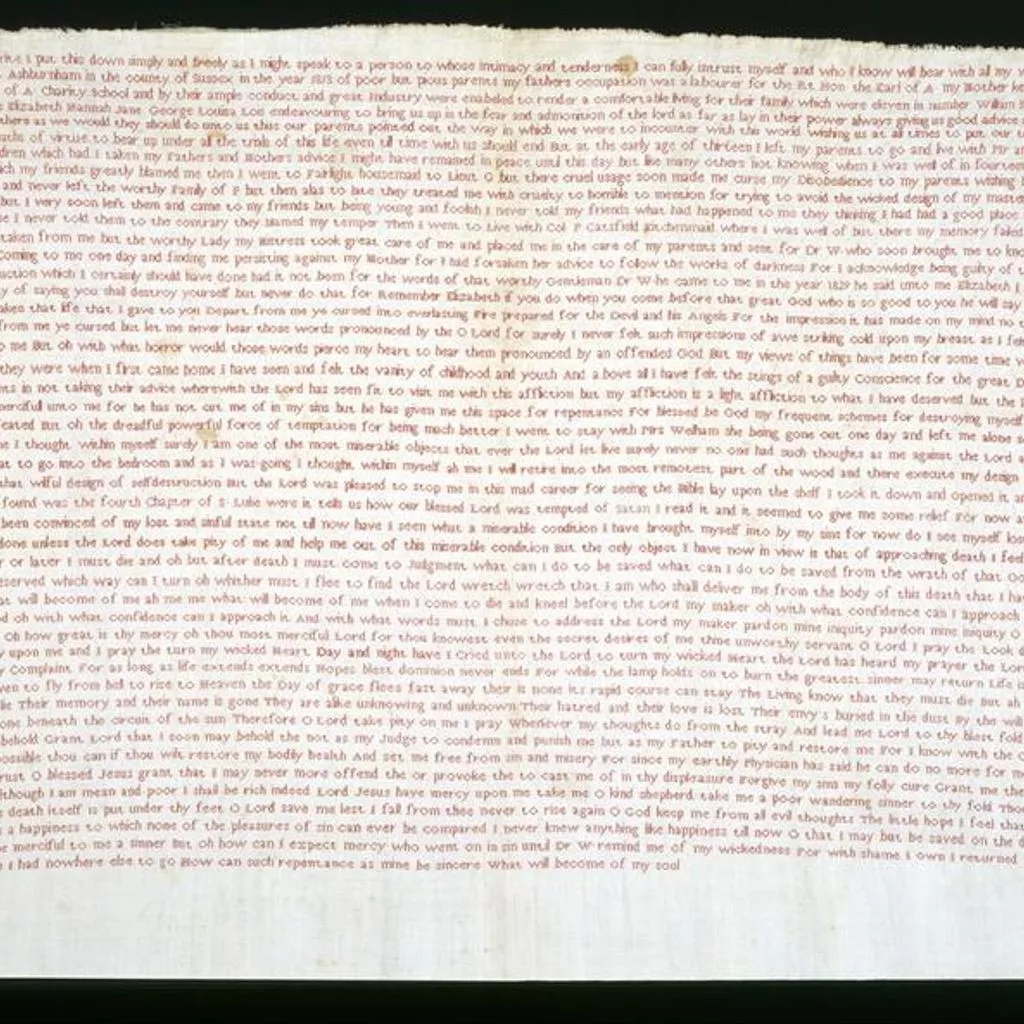 rite I put this down simply and freely as I might speak to a person to whose intimacy and tenderness I can fully intrust myself and who I know will bear with all my w
Ashburnham in the county of Sussex in the year 1813 of poor but pious parents my fathers occupation was a labourer for the Rt Hon the Earl of A my Mother ke
of A Charity school and by their ample conduct and great Industry were enabeled to render a comfortable living for their family which were eleven in number William
Elizabeth Hannah Jane George Louisa Lois endeavouring to bring us up in the fear and admonition of the lord as far as lay in their power always giving us good advice
thers as we would they should do unto us thus our parents pointed out the way in which we were to incounter with this world wishing us at all times to put our t
aths of virtue to bear up under all the trials of this life even till time with us should end But at the early age of thirteen I left my parents to go and live with Mr
dren which had I taken my Fathers and Mothers advice I might have remained in peace until this day but like many others not knowing when I was well of in fourteen
ch my friends greatly blamed me then I went to Fairlight housemaid to Lieut G but there cruel usage soon made me curse my Disobedience to my parents wishing
and never left the worthy Family of P but then alas to late they treated me with cruelty to horrible to mention for trying to avoid the wicked design of my master
but I very soon left them and came to my friends but being young and foolish I never told my friends what had happened to me they thinking I had had a good place
e I never told them to the contrary they blamed my temper Then I went to Live with Col P Catsfield kitchenmaid where I was well of but there my memory failed
taken from me but the worthy Lady my Mistress took great care of me and placed me in the care of my parents and sent for Dr W who soon brought me to kn
coming to me one day and finding me persisting against my Mother for I had forsaken her advice to follow the works of darkness For I acknowledge being guilty of t
uction which I certainly should have done had it not been for the words of that worthy Gentleman Dr W he came to me in the year 1829 he said unto me Elizabeth I
y of saying you shall destroy yourself but never do that for Remember Elizabeth if you do when you come before that great God who is so good to you he will say
aken that life that I gave to you Depart from me ye cursed into everlasting Fire prepared for the Devil and his Angels For the impression it has made on my mind no
from me ye cursed but let me never hear those words pronounced by the O Lord for surely I never felt such impressions of awe striking cold upon my breast as I fel
o me But oh with what horror would those words pierce my heart to hear them pronounced by an offended God But my views of things have been for some time
they were when I first came home I have seen and felt the vanity of childhood and youth And above all I have felt the stings of a guilty Conscience for the great D
nts in not taking their advice wherewith the Lord has seen fit to visit me with this affliction but my affliction is a light affliction to what I have deserved but the
merciful unto me for he has not cut me of in my sins but he has given me this space for repentance For blessed be God my frequent schemes for destroying myself
feated But oh the dreadful powerful force of temptation for being much better I went to stay with Mrs Welham she being gone out one day and left me alone s
me I thought within myself surely I am one of the most miserable objects that ever the Lord let live surely never no one had such thoughts as me against the Lord a
at to go into the bedroom and as I was going I thought within myself ah me I will retire into the most remotest part of the wood and there execute my design
that wilful design of selfdestruction But the Lord was pleased to stop me in this mad career for seeing the Bible lay upon the shelf I took it down and opened it a
found was the fourth Chapter of S Luke were it tells us how our blessed Lord was tempted of satan I read it and it seemed to give me some relief For now a
been convinced of my lost and sinful state not till now have I seen what a miserable condition I have brought myself into by my sins for now do I see myself los
done unless the Lord does take pity of me and help me out of this miserable condition But the only object I have now in view is that of approaching death I feel
r or later I must die and oh but after death I must come to Judgment what can I do to be saved what can I do to be saved from the wrath of that Go
eserved which way can I turn oh whither must I flee to find the Lord wretch wretch that I am who shall deliver me from the body of this death that I ha
at will become of me ah me me what will become of me when I come to die and kneel before the Lord my maker oh with what confidence can I approach
d oh with what confidence can I approach it And with what words must I chuse to address the Lord my maker pardon mine iniquity pardon mine iniquity O
Oh how great is thy mercy oh thou most merciful Lord for thou knowest even the secret desires of me thine unworthy servant O Lord I pray the Look d
y upon me and I pray the turn my wicked Heart Day and night have I Cried unto the Lord to turn my wicked Heart the Lord has heard my prayer the Lor
y Complaint For as long as life extends extends Hopes blest dominion never ends For while the lamp holds on to burn the greatest sinner may return Life is
ven to fly from hel to rise to Heaven the Day of grace flees fast away their is none its rapid course can stay The Living know that they must die But ah
lie Their memory and their name is gone They are alike unknowing and unknown Their hatred and their love is lost Their envy s buried in the dust By the will
one beneath the circuit of the sun Therefore O Lord take pity on me I pray Whenever my thoughts do from the stray And lead me Lord to thy blest fold
behold Grant Lord that I soon may behold the not as my Judge to condemn and punish me but as my Father to pity and restore me For I know with the O
possible thou can if thou wilt restore my bodily health And set me free from sin and misery For since my earthly Physician has said he can do no more for m
rust O blessed Jesus grant that I may never more offend the or provoke the to cast me of in thy displeasure Forgive my sins my folly cure Grant me the
lthough I am mean and poor I shall be rich indeed Lord Jesus have mercy upon me take me O kind shepherd take me a poor wandering sinner to thy fold Tho
s death itself is put under thy feet O Lord save me lest I fall from thee never to rise again O God keep me from all evil thoughts The little hope I feel tha
a happiness to which none of the pleasures of sin can ever be compared I never knew anything like happiness till now O that I may but be saved on the d
e merciful to me a sinner But oh how can I expect mercy who went on in sin until Dr W remind me of my wickedness For with shame I own I returned
I had nowhere else to go How can such repentance as mine be sincere What will become of my soul